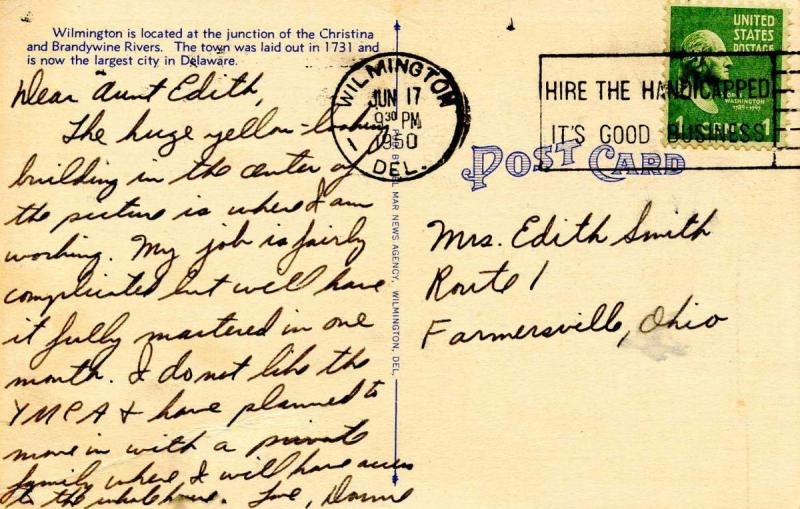 Wilmington is located at the junction of the Christina
and Brandywine Rivers. The town was laid out in 1731 and
is now the largest city in Delaware.
Dear Aunt Edith,
The huge yellow-looking
building in the center of
the picture is where I am
working. My job is fairly
complicated but will have
it fully mastered in one
month. I do not like the
YMCA & have planned to
move in with a private
family where I will have access
to the whole house. Love,
WILMINGTON
JUN 17
9 30 PM
1950
DEL.
1
HIRE THE HANDICAPPED
IT'S GOOD BUSINESS
UNITED
STATES
POSTAGE
WASHINGTON
1
POST CARD
MAR NEWS AGENCY, WILMINGTON, DEL.
Mrs. Edith Smith
Route 1
Farmersville, Ohio